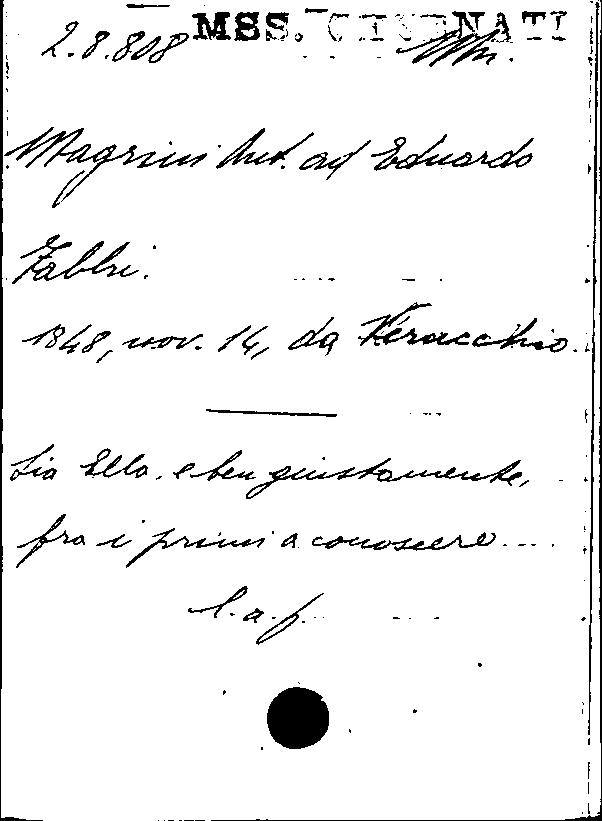 2.8.808 MSS. CESENATI
Magrini Ant. ad Eduardo
Fabbri.
1848, nov. 14, da Veracchio.
Sia Ella, e ben giustamente,
fra i primi a conoscere....
l. a. f.